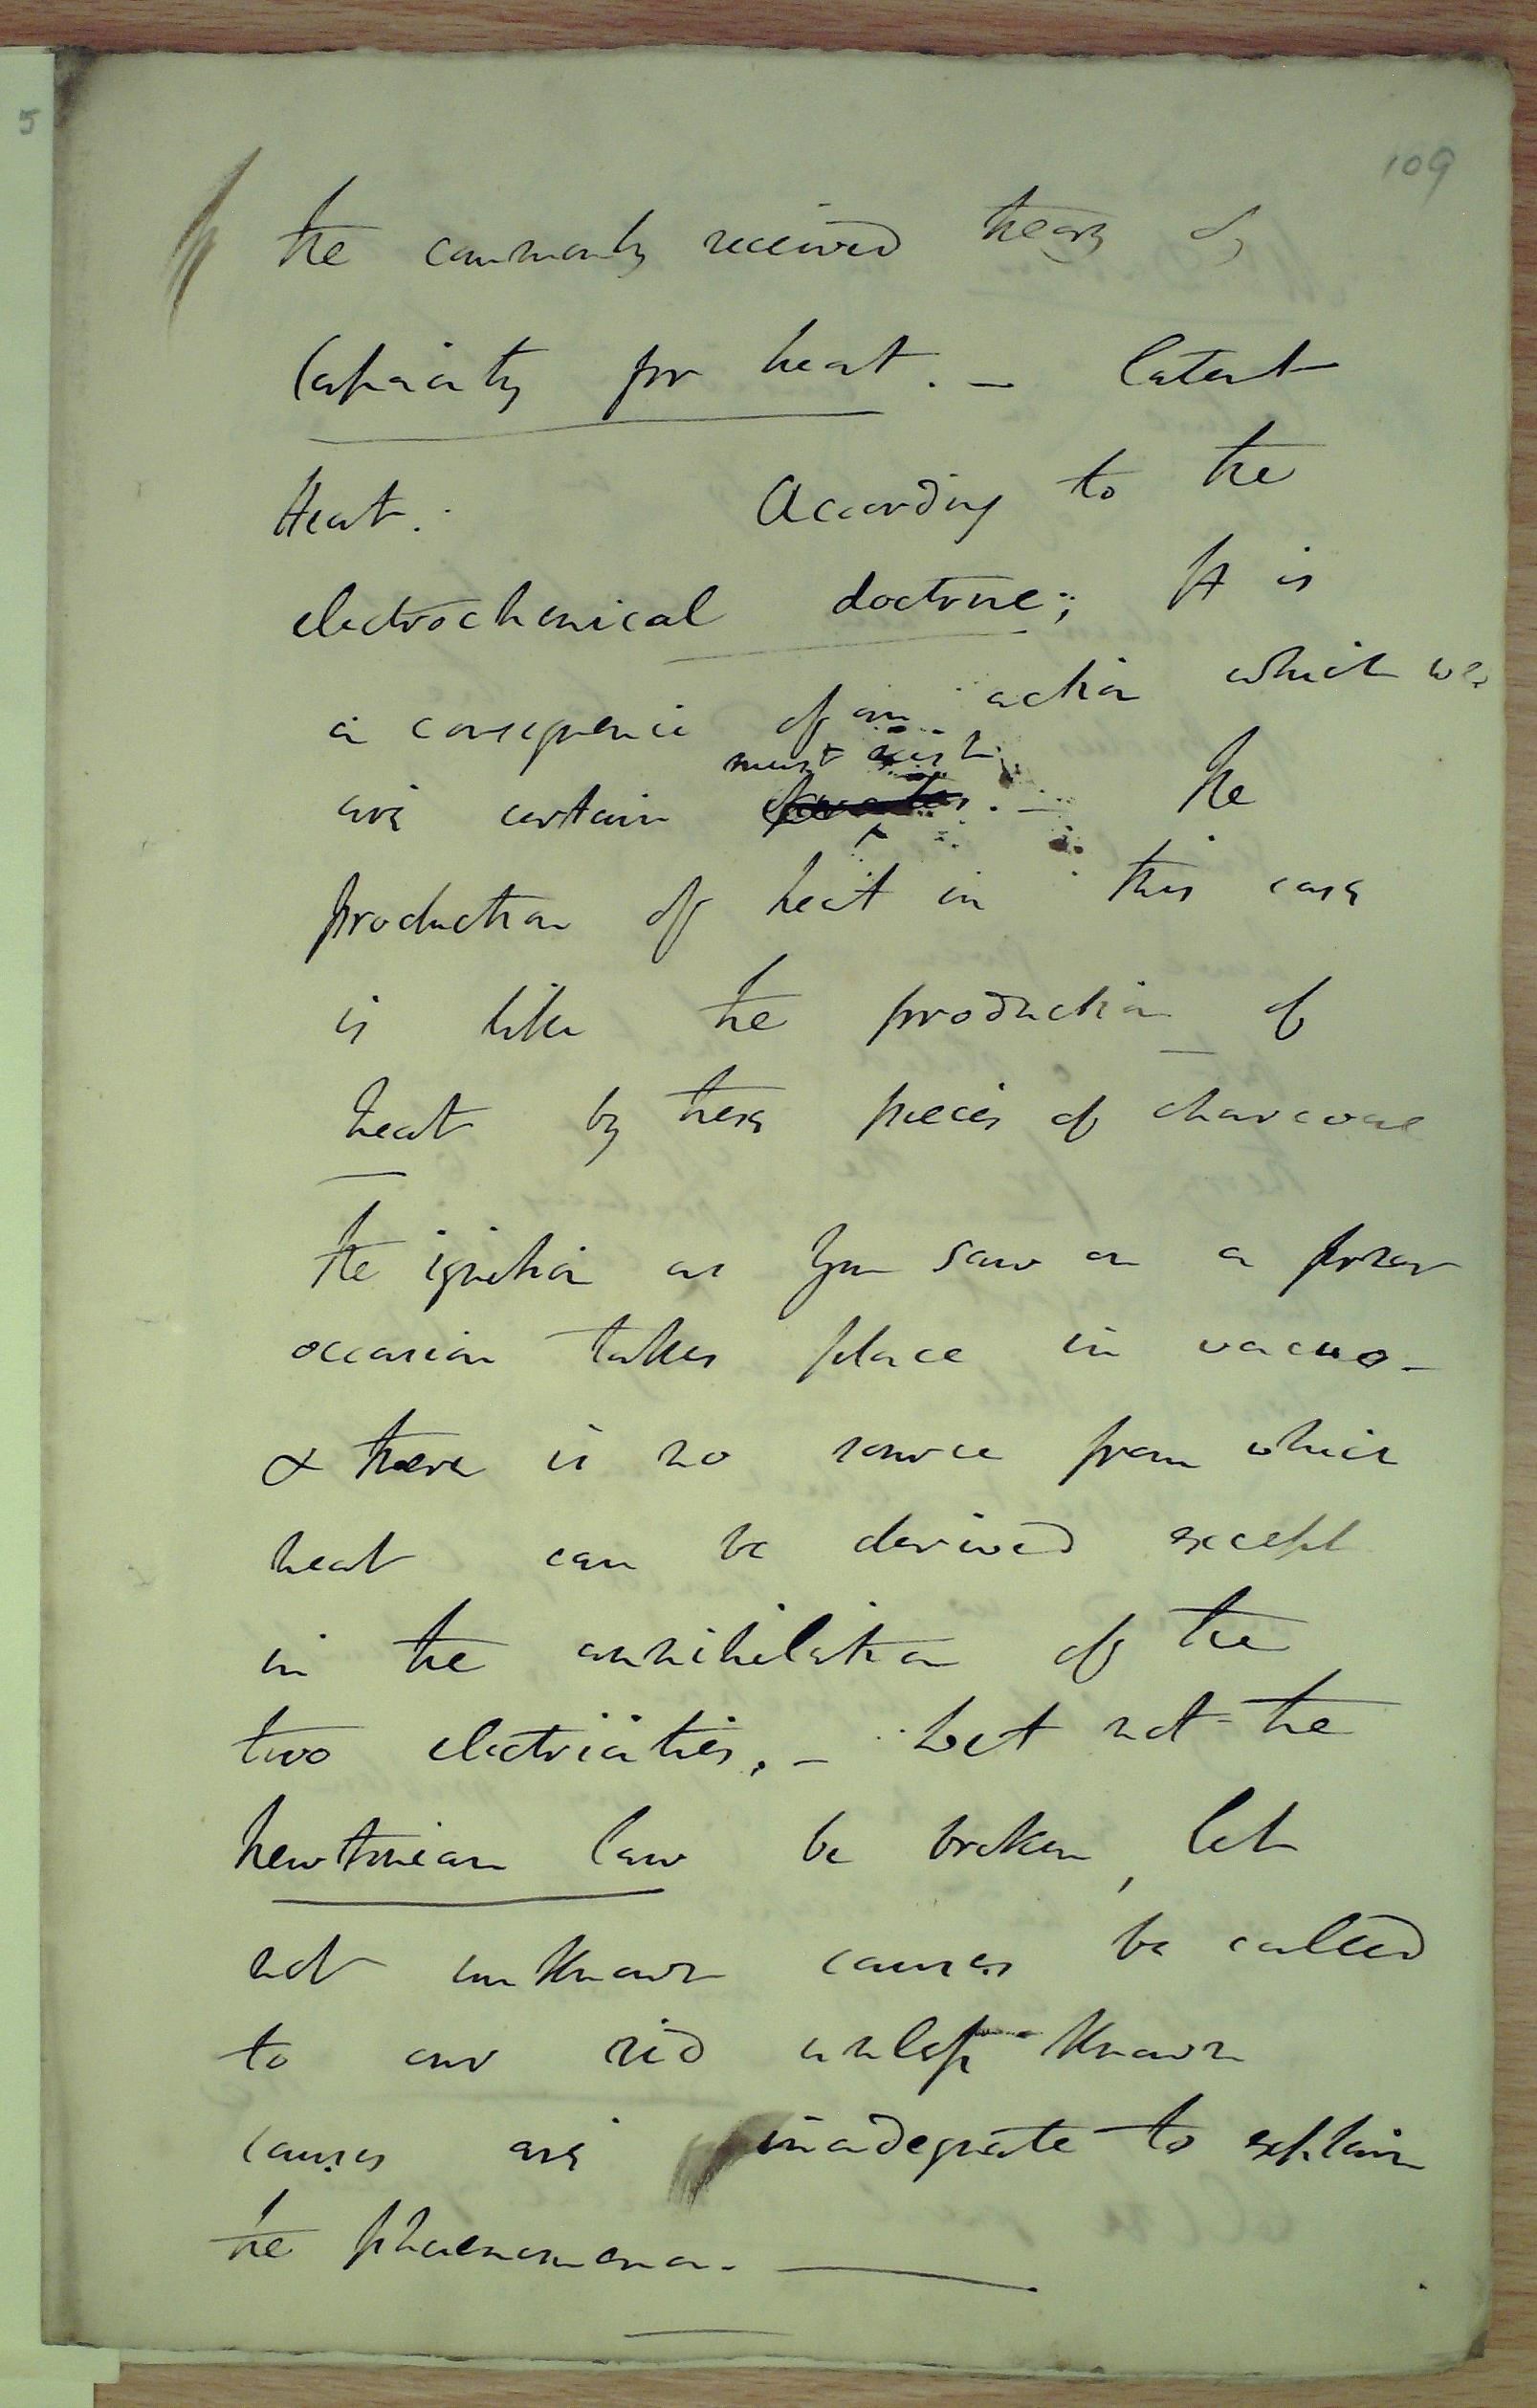 5
109
the commonly received theory of
Capacity for heat. – latent
Heat. According to the
electrochemical doctrine; It is
a consequence of an action which we
must exist
are certain . –  The
production of heat in this case
is like the production of
heat by these pieces of charcoal
The ignition as you saw on a former
occasion takes place in vacuo –
& there is no source from which
heat can be derived except
in the annihilation of the
two electricities. – Let not the
Newtonian law be broken, let
not unknown causes be called
to our aid unless known
causes are inadequate to explain
the phaenomena. –